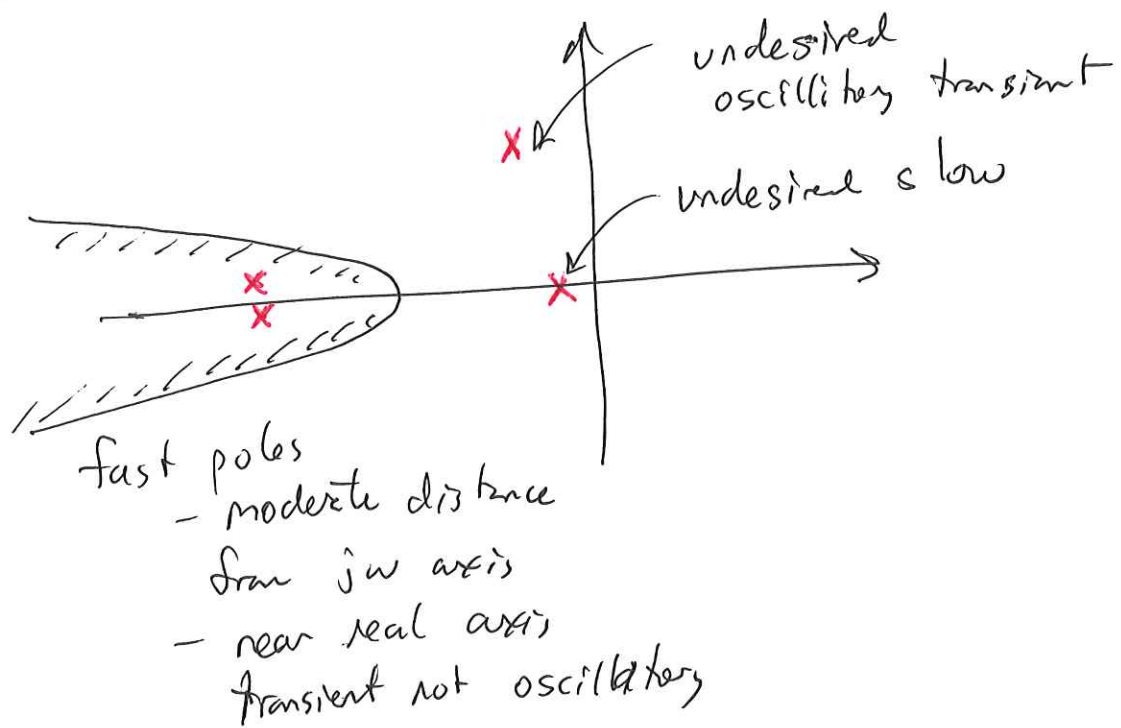 undesired
oscillitory transient
undesired slow
fast poles
- moderate distance
from jw axis
- near real axis
transient not oscillatory